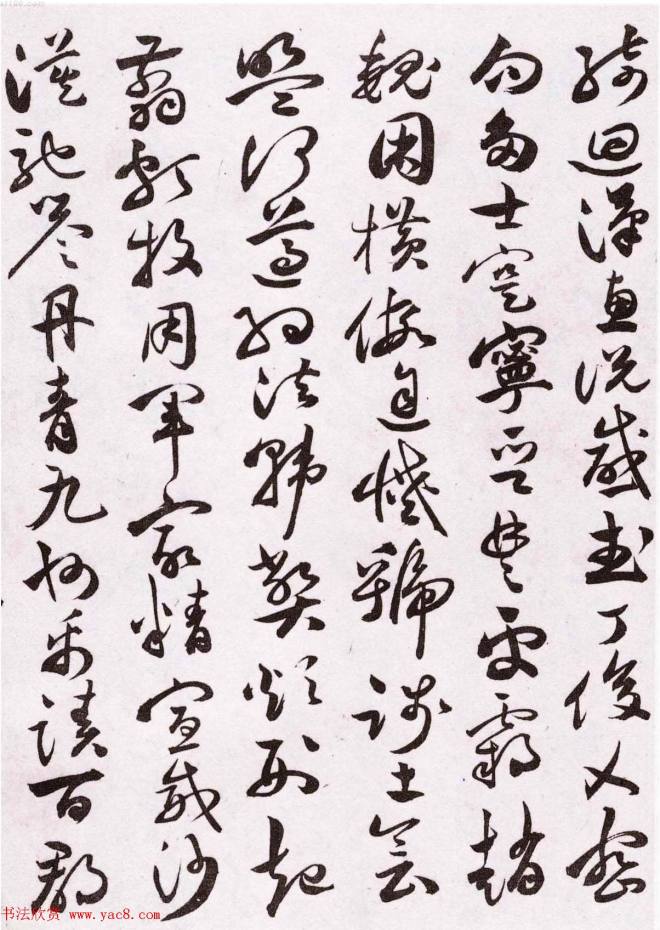 綺迴漢惠說感武丁俊乂密
勿多士寔寧晉楚更霸趙
魏困橫假途滅虢踐土會
盟何遵約法韓弊煩刑起
翦頗牧用軍最精宣威沙
漠馳譽丹青九州禹跡百郡
书法欣赏 www.yac8.com